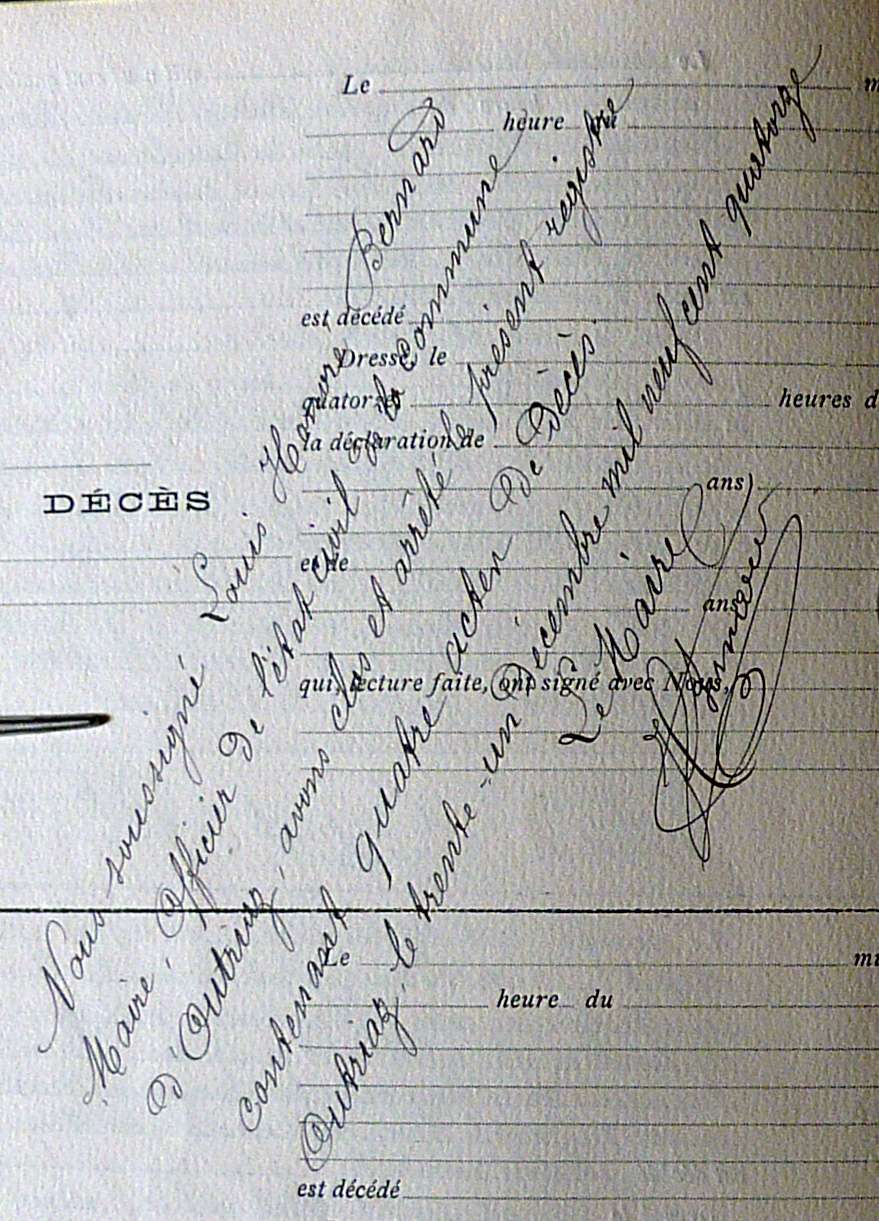 Le m
heure du
est décédé
Dressé, le
quatorze, heures d
la déclaration de
DÉCÈS
ans,
et de
ans,
qui, lecture faite, ont signé avec Nous,
Nous soussigné Louis Honoré Bernard
Maire, Officier de l'état civil de la commune
d'Outriaz, avons clos et arrêté le présent registre
contenant quatre actes de Décès.
Outriaz, le trente-un Décembre mil neuf cent quatorze
Le Maire
Le mi
heure du
est décédé